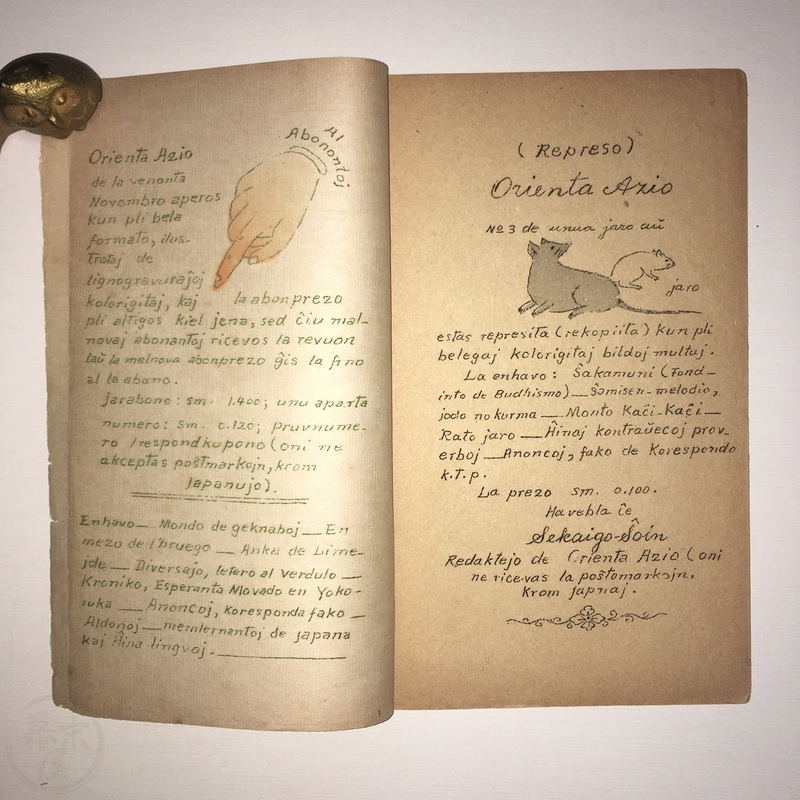 Al
Abonontoj
Orienta Azio
de la venonta
Novembro aperos
kun pli bela
formato, ilus-
trataj de
lignogravuraĵoj
kolorigitaj, kaj la abonprezo
pli altigos kiel jena, sed ĉiu mal-
novaj abonantoj ricevos la revuon
laŭ la malnova abonprezo ĝis la fino
al la abono.
Jarabono: sm. 1.400; unu aparta
numero: sm. 0.120; pruvnume-
ro 1respondkupono (oni ne
akceptas poŝtmarkojn, krom
Japanujo).
Enhavo — Mondo de geknaboj — En
mezo de l'bruego — Anka de Lime-
jde — Diversaĵo, letero al verdulo —
Kroniko, Esperanta Movado en Yoko-
suka — Anoncoj, koresponda fako —
Aldonoj — memlernantoj de japana
kaj Ĥina lingvoj.
(Represo)
Orienta Azio
No 3 de unua jaro aŭ
jaro
estas represita (rekopiita) kun pli
belegaj kolorigitaj bildoj multaj.
La enhavo: Ŝakamuni (Fond-
into de Budhismo) — Ŝamisen-melodio,
jado no kurma — Monto Kaĉi-Kaĉi —
Rato jaro — Ĥinaj kontraŭecoj prov-
erboj — Anoncoj, fako de Korespondo
k.t.p.
La prezo sm. 0.100.
Havebla ĉe
Sekaigo-Ŝoin
Redaktejo de Orienta Azio (oni
ne ricevas la poŝtomarkojn,
krom japnaj.